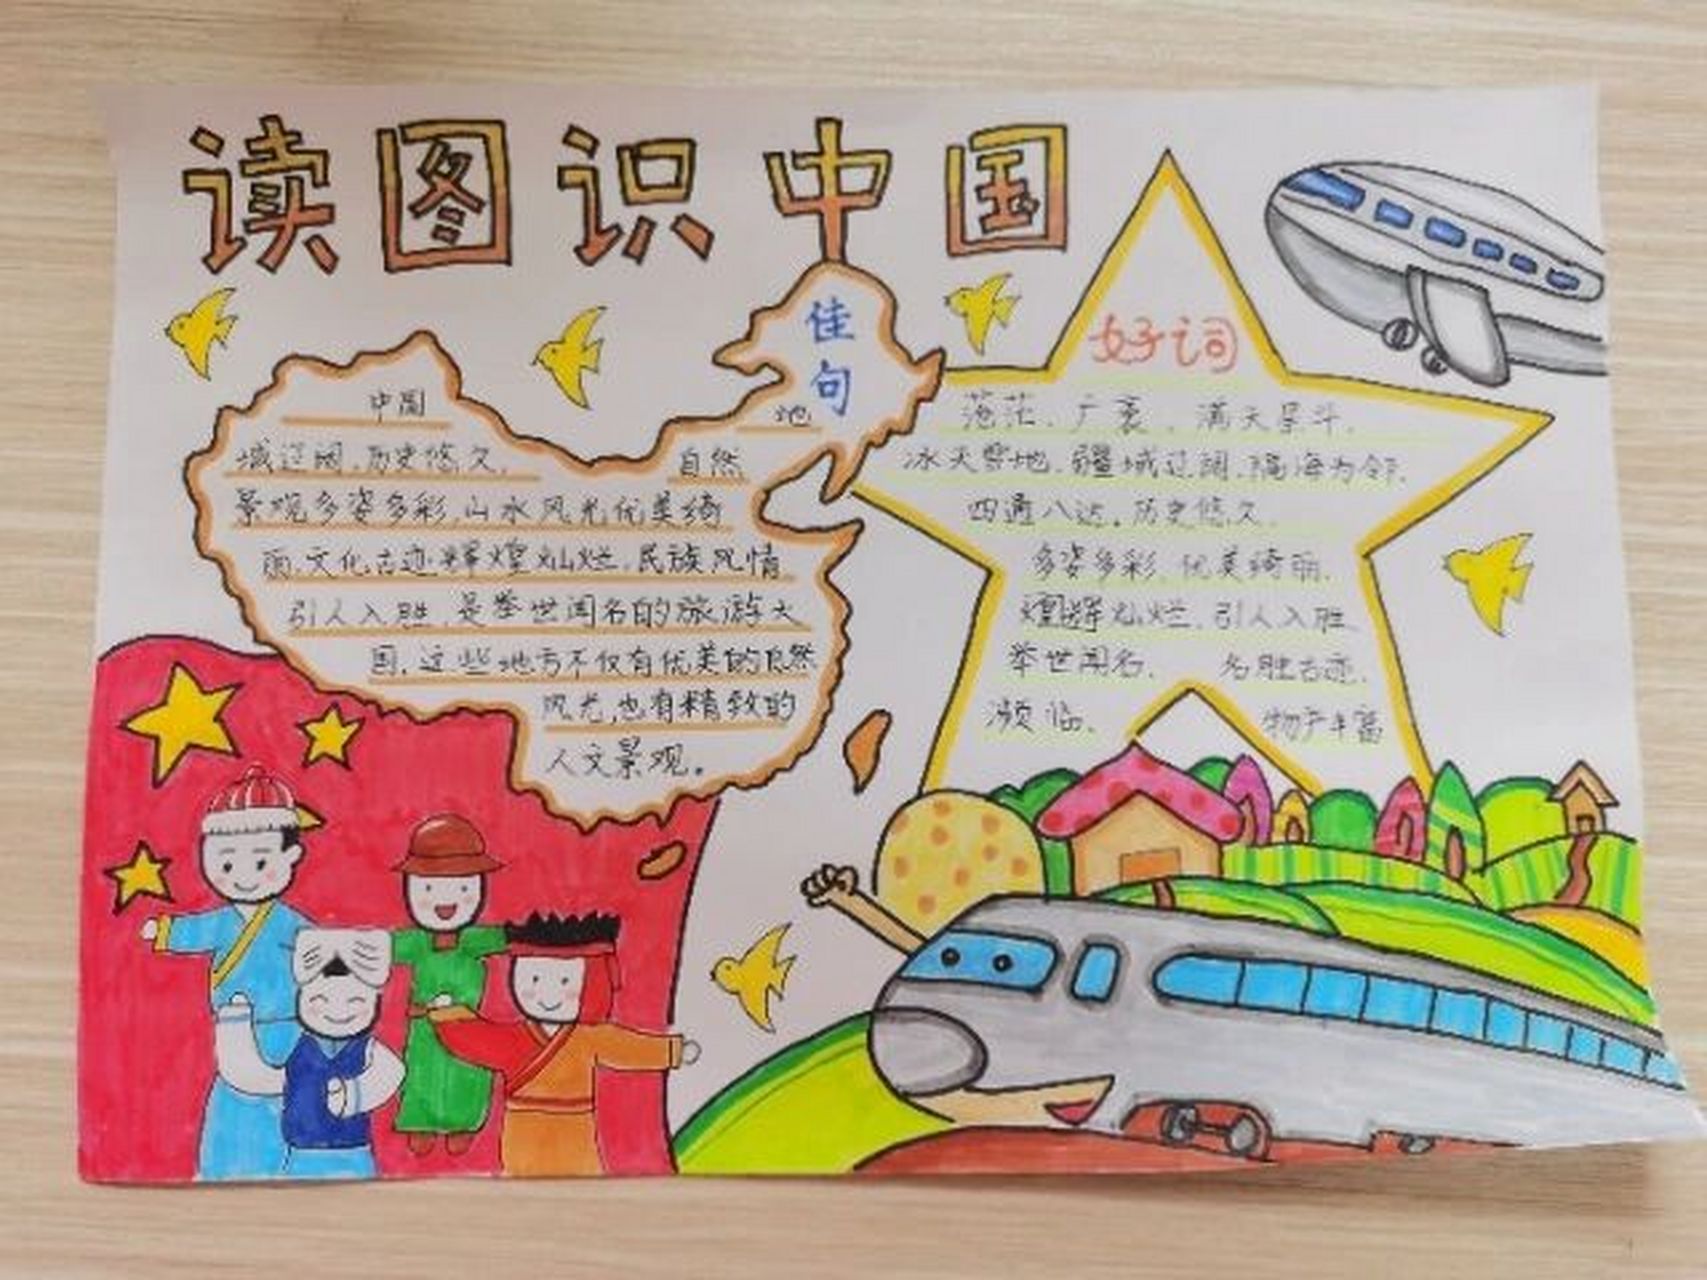 读图识中国
佳句
中国 地
域辽阔,历史悠久, 自然
景观多姿多彩,山水风光优美绮
丽,文化古迹辉煌灿烂,民族风情
引人入胜,是举世闻名的旅游大
国,这些地方不仅有优美的自然
风光,也有精致的
人文景观。
好词
广袤、满天星斗、
冰天雪地、疆域辽阔、隔海为邻、
四通八达、历史悠久、
多姿多彩、优美绮丽、
煌辉灿烂、引人入胜
举世闻名、 名胜古迹、
濒临、 物产丰富